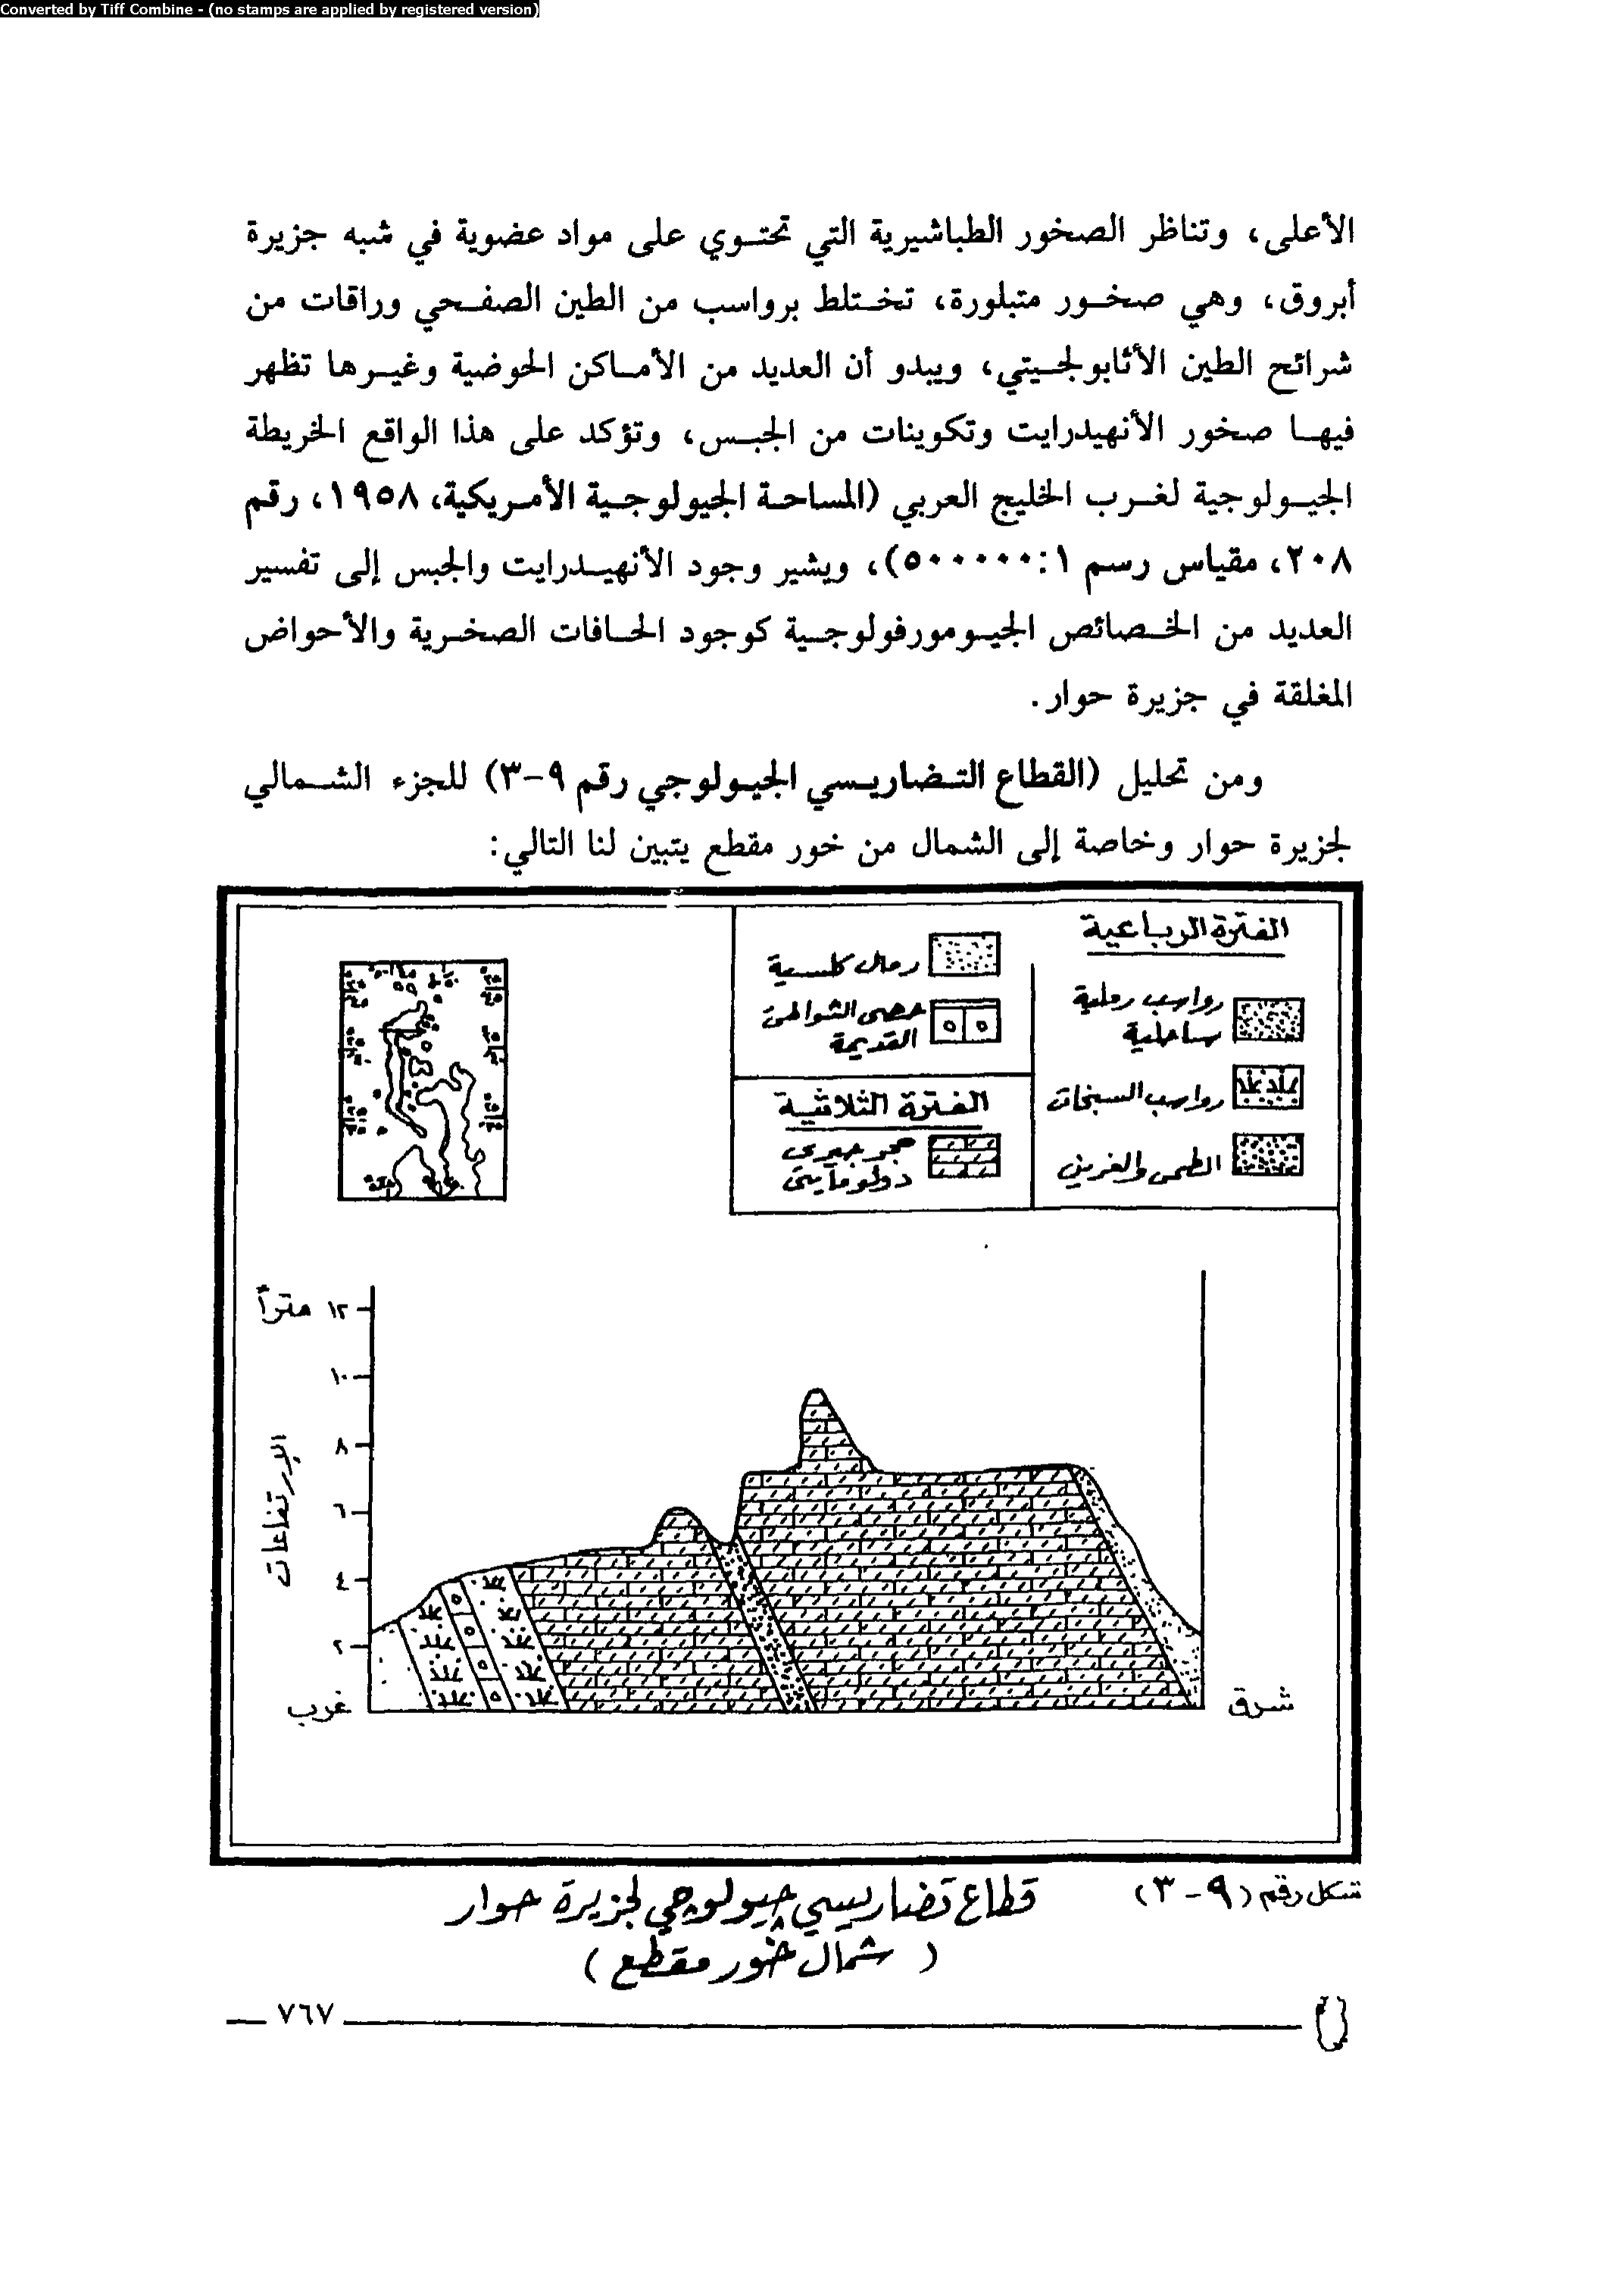 Converted by Tiff Combine - (no stamps are applied by registered version)
الأعلى، وتناظر الصخور الطباشيرية التي تحتوي على مواد عضوية في شبه جزيرة
أبروق، وهي صخور متبلورة، تختلط برواسب من الطين الصفحي وراقات من
شرائح الطين الأثابولجيتي، ويبدو أن العديد من الأماكن الحوضية وغيرها تظهر
فيها صخور الأنهيدرايت وتكوينات من الجبس، وتؤكد على هذا الواقع الخريطة
الجيولوجية لغرب الخليج العربي (المساحة الجيولوجية الأمريكية، ١٩٥٨، رقم
٢٠٨، مقياس رسم ١:٥٠٠٠٠٠)، ويشير وجود الأنهيدرايت والجبس إلى تفسير
العديد من الخصائص الجيومورفولوجية كوجود الحافات الصخرية والأحواض
المغلقة في جزيرة حوار.
ومن تحليل (القطاع التضاريسي الجيولوجي رقم ٩-٣) للجزء الشمالي
لجزيرة حوار وخاصة إلى الشمال من خور مقطع يتبين لنا التالي:
الفترة الرباعية
رواسب رملية
ساحلية
رواسب السبخات
الطمى والغرين
رمال كلسية
حصى الشواطئ
القديمة
الفترة الثلاثية
حجر جيرى
دولومايتى
١٢ متراً
١٠
٨
٦
٤
٢
الإرتفاعات
غرب
شرق
شكل رقم (٩-٣) قطاع تضاريسي جيولوجي لجزيرة حوار
(شمال خور مقطع)
٧٦٧